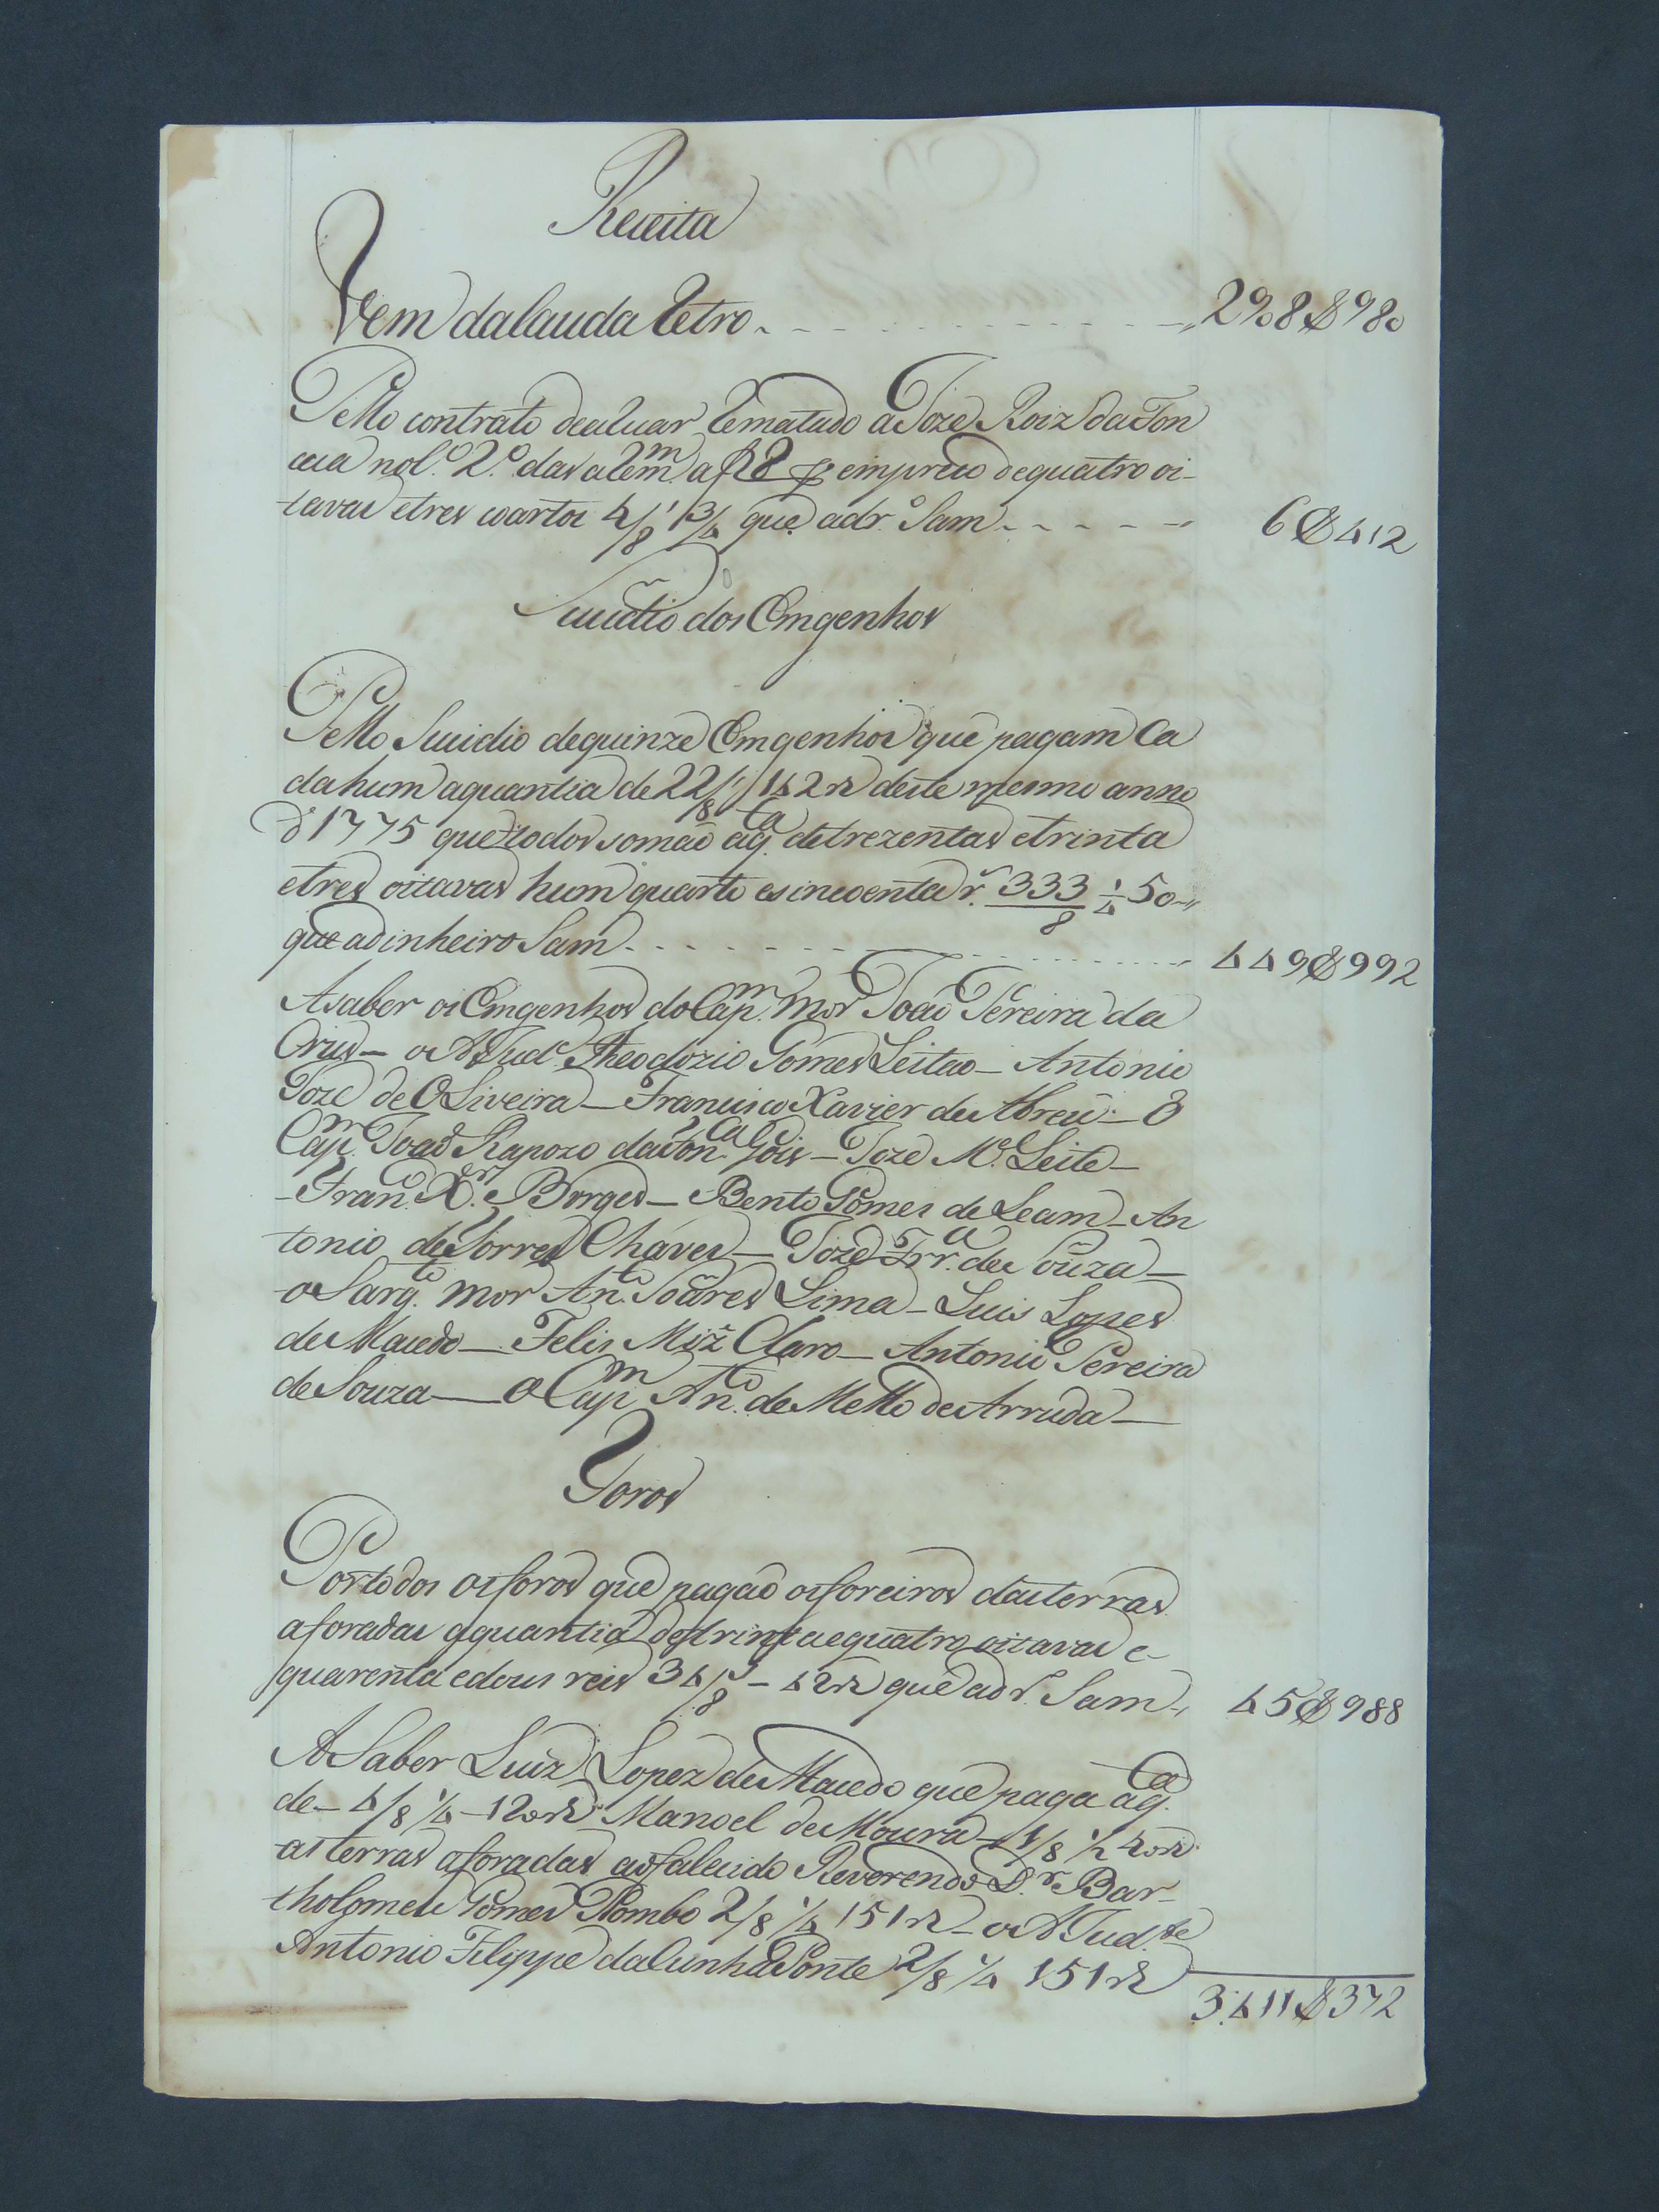 Receita
Vem dalauda Retro - - - - - - - - - - - - - 2908$980
Pello contrato dealuar Rematado a Joze Roiz da Fon
ceca nol.º 2.º das arem.m af 28 empreco dequatro oi-
tavas etres coartos 4/8 3/4 que adr.º Sam - - - - - 6$412
Sucidio dos Emgenhos
Pello Sucidio dequinze Emgenhos que pagam Ca
dahum aquantia de 22/8 142 rs deste mesmo anno
d 1775 que todos somão aq.ta detrezentas etrinta
etres oitavas hum quarto esincoenta r.s 333/8 1/4 50
que adinheiro Sam - - - - - - - - - - - - 449$992
Asaber os Emgenhos do Cap.m Mor João Pereira da
Crus - o AJud.e Theodozio Gomes Leitao - Antonio
Joze de OLiveira - Francisco Xavier de Abreu - O
Cap.m Joaõ Rapozo da Fon.ca Gois - Joze M.el Leite -
- Fran.co X.er Borges - Bento Gomes de Leam - An
tonio de Torres Chaves - Joze Frr.a de Souza -
o Sarg.to mor An.to Soares Lima - Luis Lopes
de Macedo - Felis Miz Claro - Antonio Pereira
de Souza - O Cap.m An.to de Mello de Arruda -
Foros
Portodos osforos que pagão osforeiros dasterras
aforadas aquantia detrinta equatro oitavas e-
quarenta edous reis 34/8 - 42 rs que ad r.º Sam 45$988
ASaber Luiz Lopez de Macedo que paga aq.ta
de - 4/8 1/4 - 120 rs Manoel de Moura - 1/8 1/2 40 rs
as terras aforadas aofalecido Reverendo D.r Bar-
tholomeu Gomes Pombo 2/8 1/4 151 rs - o AJud.te
Antonio Filippe da Cunha Ponte 2/8 1/4 151 rs
3.411$372